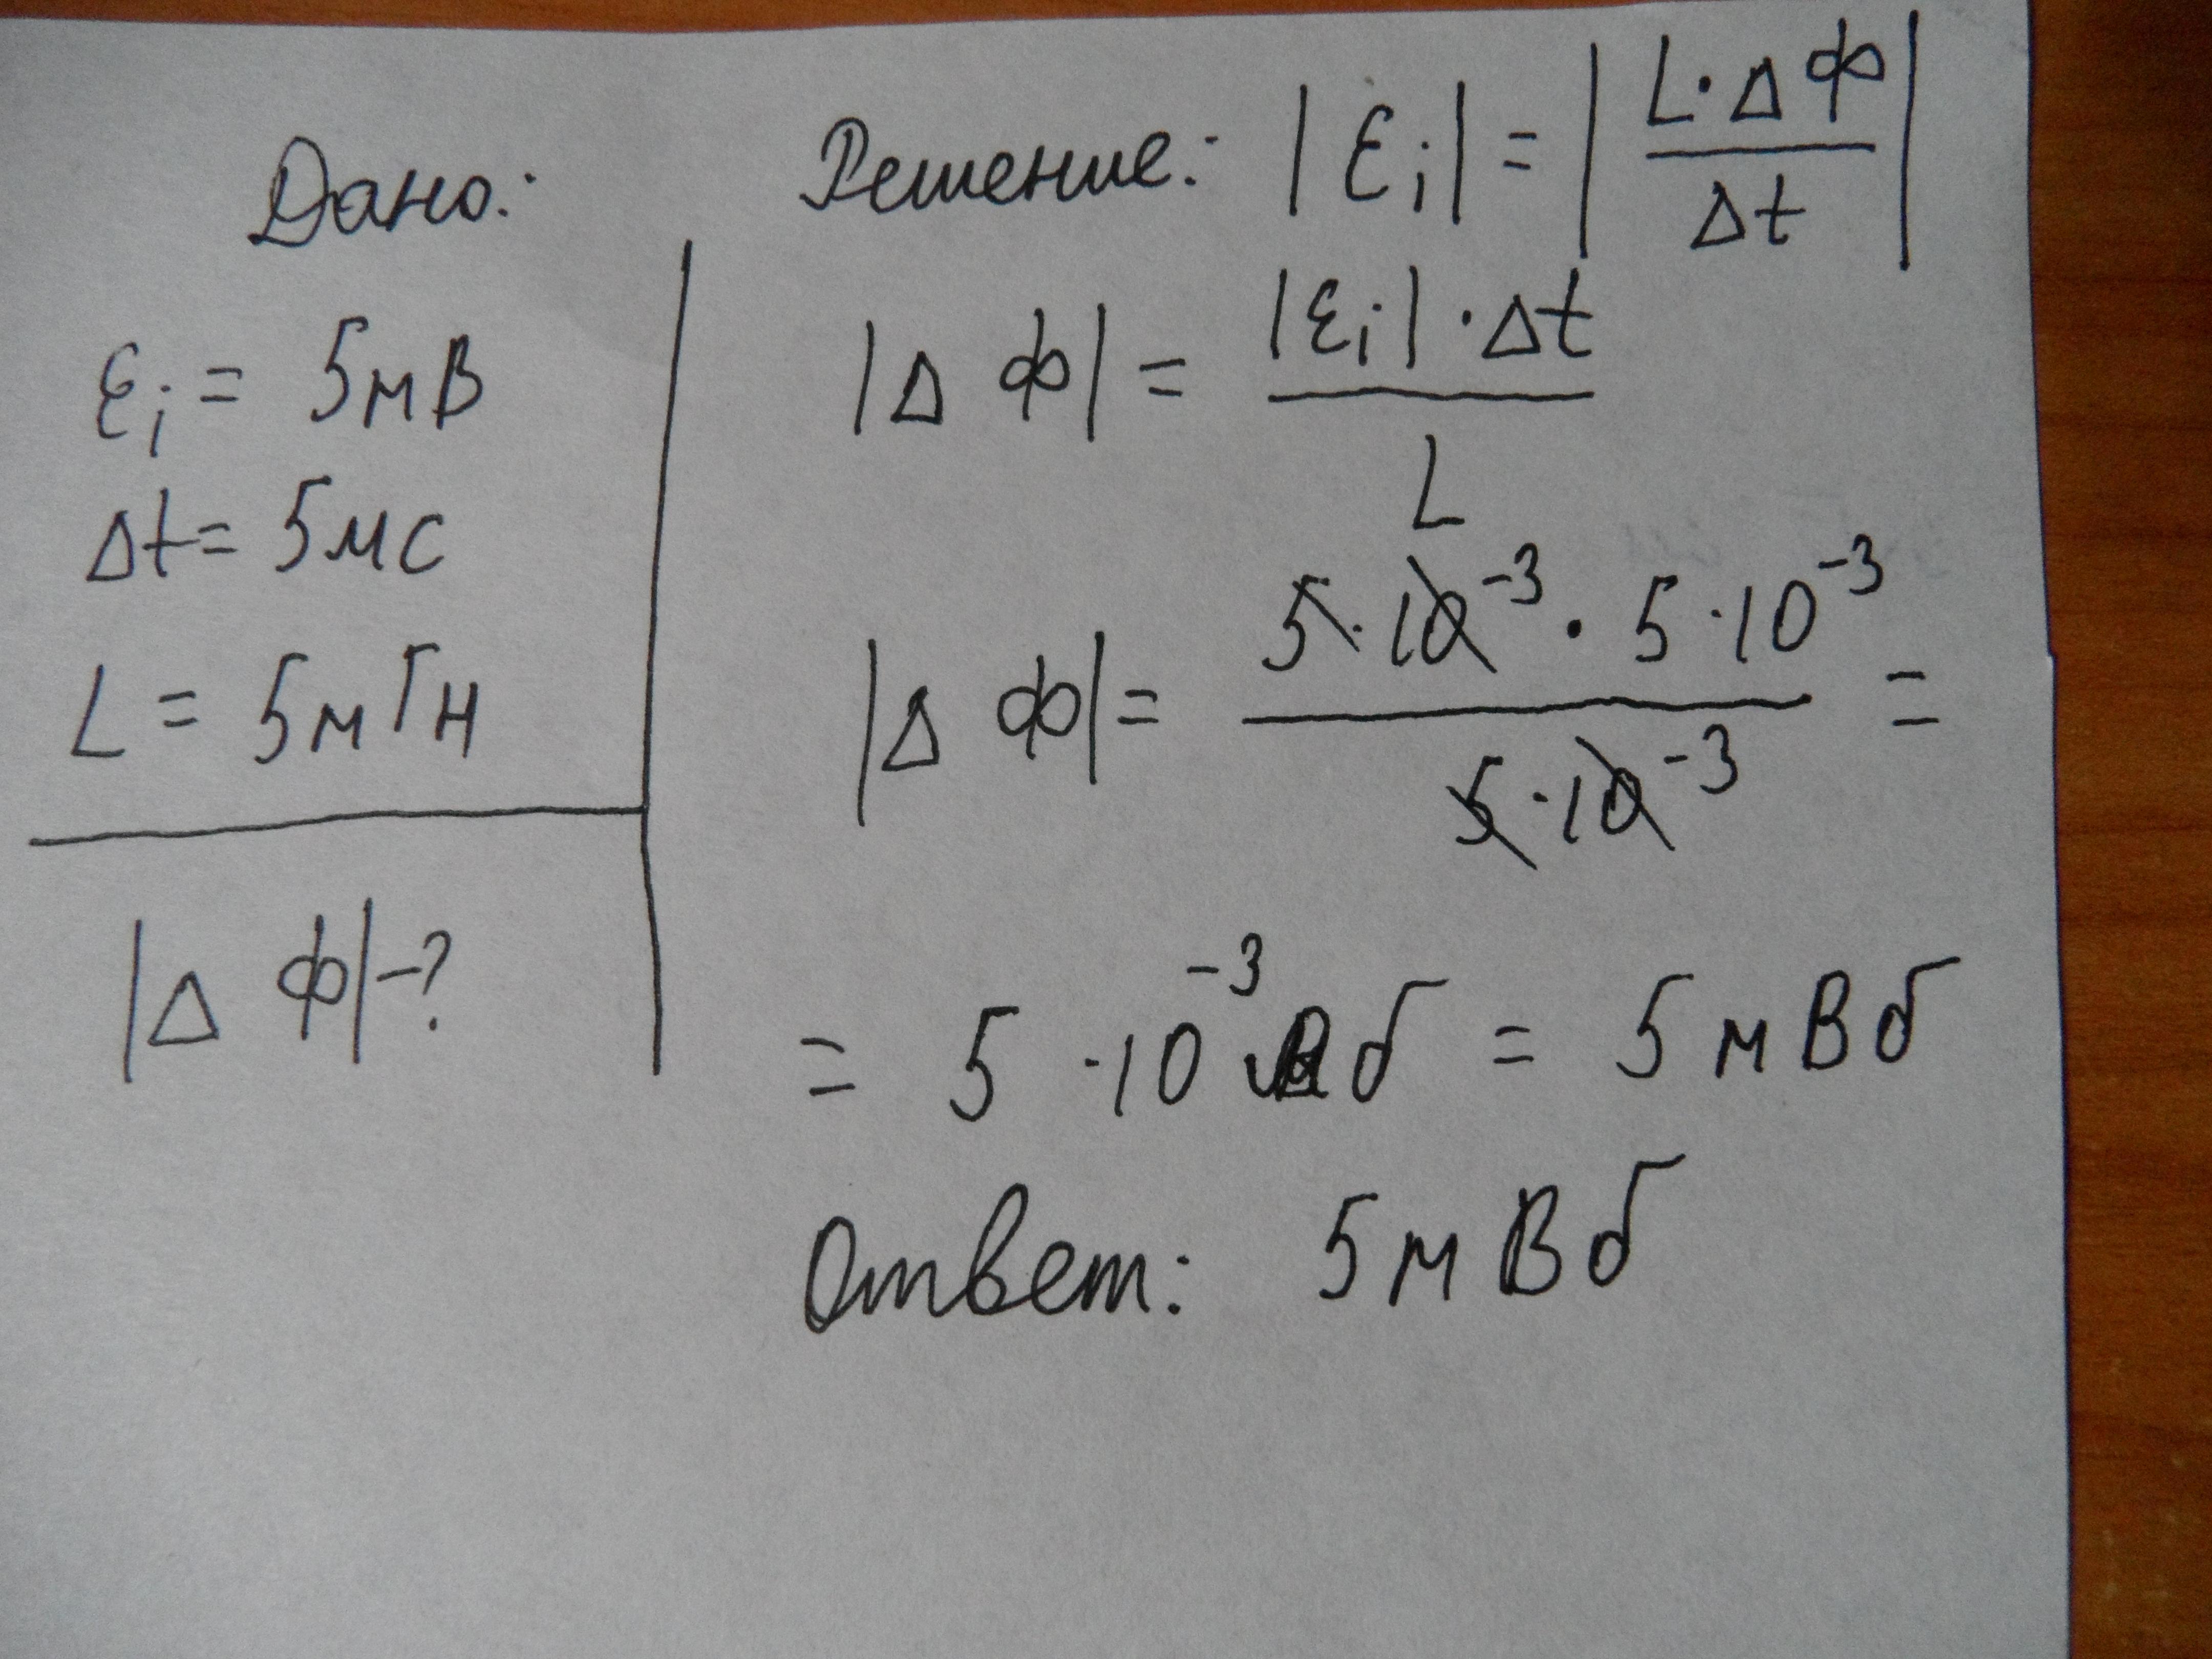 Дано:
εi = 5мВ
Δt = 5мс
L = 5мГн
|Δ Ф| - ?
Решение: |εi| = |L·ΔФ / Δt|
|Δ Ф| = |εi|·Δt / L
|Δ Ф| = 5·10⁻³ · 5·10⁻³ / 5·10⁻³ =
= 5·10⁻³ Вб = 5 мВб
Ответ: 5 мВб